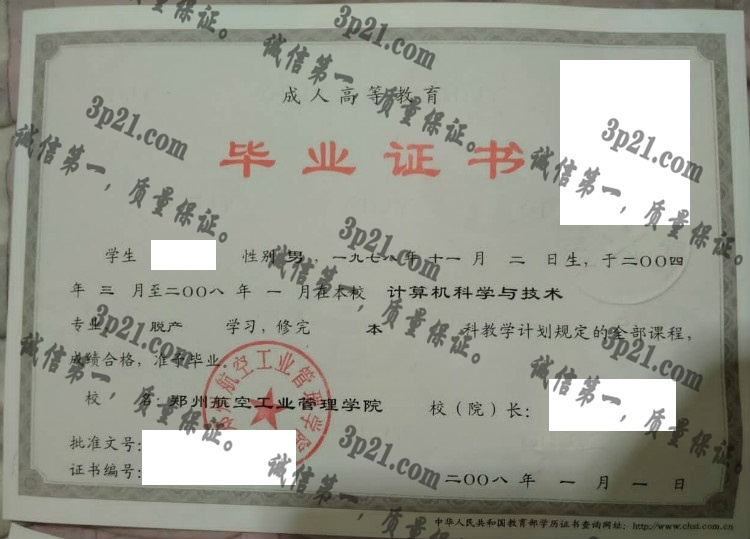 成人高等教育
毕业证书
学生 性别 男，一九七八年十一月 二 日生，于二〇〇四
年 三 月至二〇〇八 年 一 月在本校 计算机科学与技术
专业 脱产 学习，修完 本 科教学计划规定的全部课程，
成绩合格，准予毕业。
校 名：郑州航空工业管理学院 校（院）长：
批准文号：
证书编号：
二〇〇八 年 一 月 一 日
中华人民共和国教育部学历证书查询网址：http://www.chsi.com.cn
郑州航空工业管理学院
3p21.com
诚信第一，质量保证。
3p21.com
诚信第一，质量保证。
3p21.com
诚信第一，质量保证。
3p21.com
诚信第一，质量保证。
3p21.com
诚信第一，质量保证。
3p21.com
诚信第一，质量保证。
3p21.com
诚信第一，质量保证。
3p21.com
诚信第一，质量保证。
质量保证。